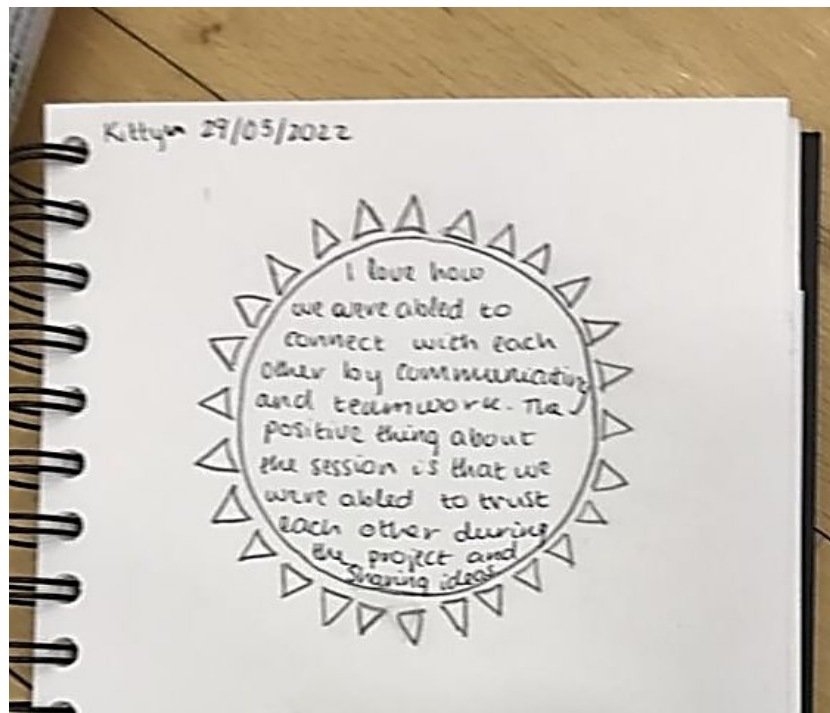 Kittyn 29/05/2022
I love how
we were abled to
connect with each
other by communicating
and teamwork. The
positive thing about
the session is that we
were abled to trust
each other during
the project and
Sharing ideas